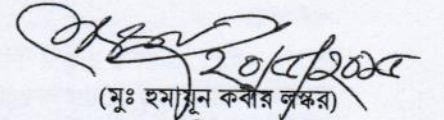 ২০/৫/২০১৫
(মুঃ হুমায়ূন কবীর লস্কর)